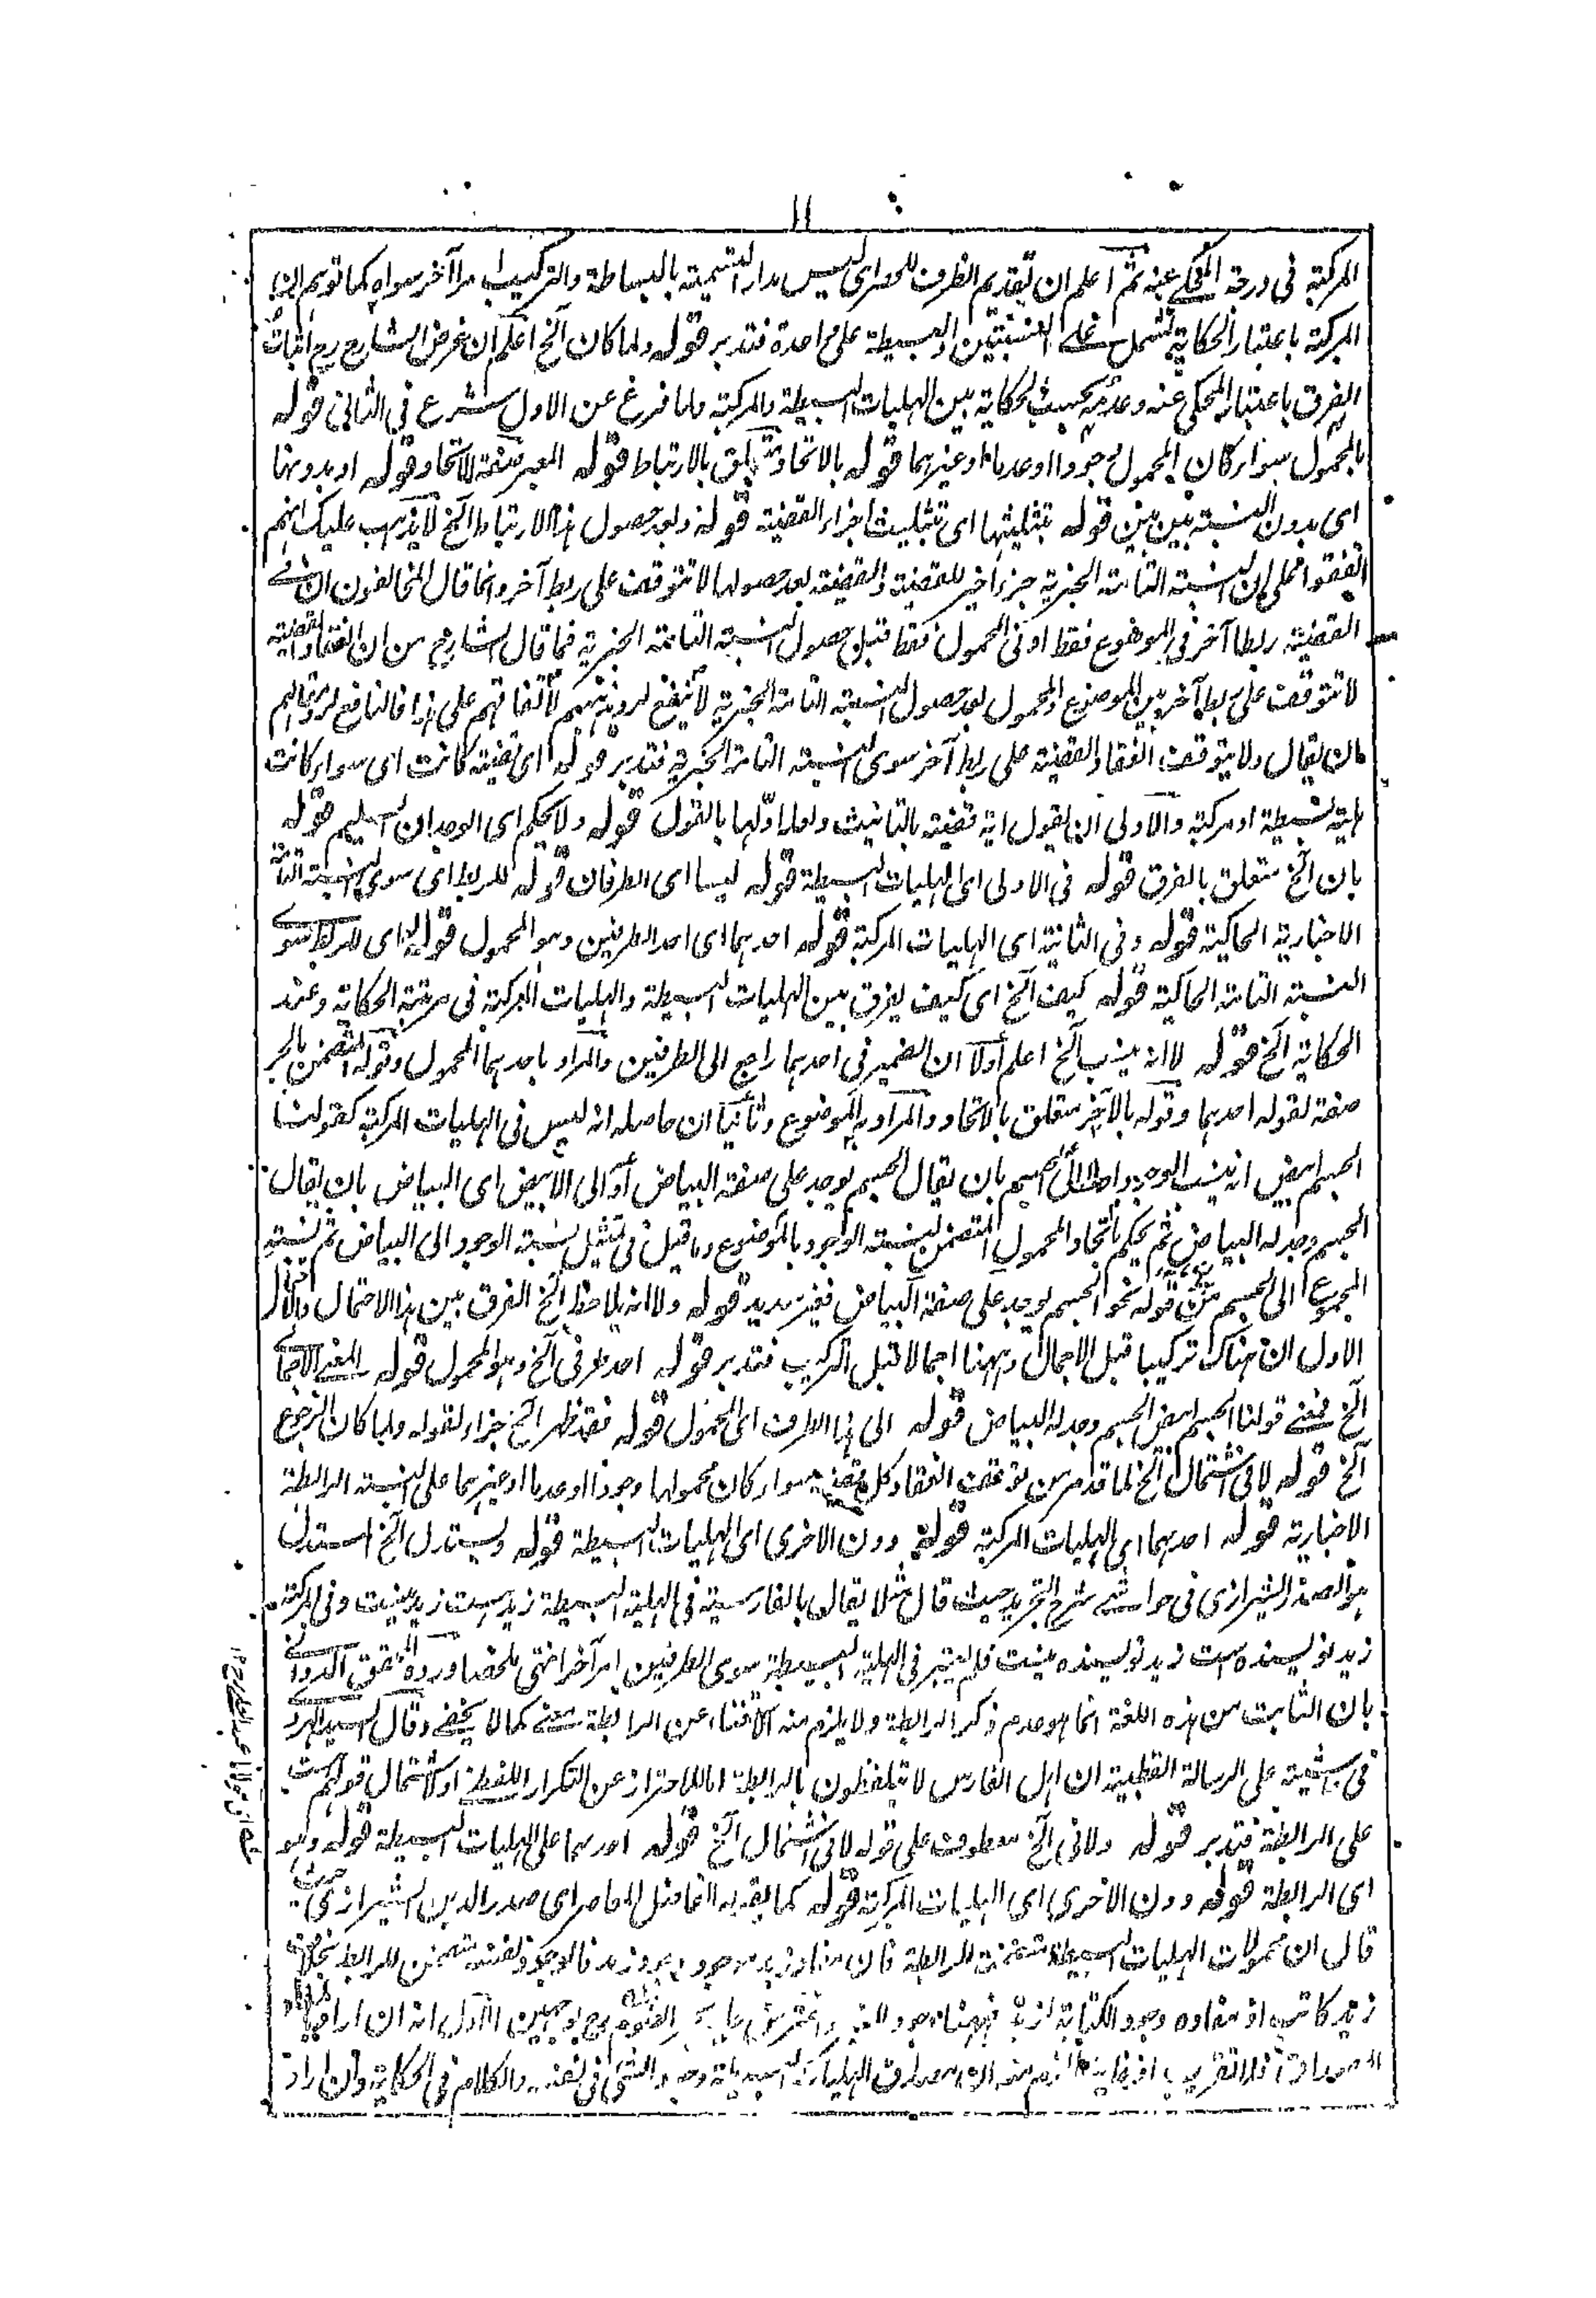 ١١
المركبة فى درجة المحكى عنه ثم اعلم ان تقديم الظرف للحصر اى ليس مدار التسمية بالبساطة والتركيب امرا آخر سواه كما توهم ان
المركبة باعتبار الحكاية تشمل على النسبتين والبسيطة على واحدة فتدبر قوله ولما كان آلخ اعلم ان غرض الشارح رح اثبات
الفرق باعتبار المحكى عنه وعدمه بحسب الحكاية بين الهليات البسيطة والمركبة ولما فرغ عن الاول شرع فى الثانى قوله
بالمحمول سواء كان المحمول وجودا او عدما او غيرهما قوله بالاتحاد متعلق بالارتباط قوله المعبر صفة للاتحاد قوله او بدونها
اى بدون النسبة بين بين قوله بتثليثها اى تثليث اجزاء القضية قوله وبعد حصول هذا الارتباط آلخ لا يذهب عليك انهم
اتفقوا على ان النسبة التامة الخبرية جزء اخير للقضية والقضية بعد حصولها لا تتوقف على ربط آخر وانما قال المخالفون ان فى
القضية ربطا آخر فى الموضوع فقط او فى المحمول فقط قبل حصول النسبة التامة الخبرية فما قال الشارح من ان انعقاد القضية
لا تتوقف على ربط آخر بين الموضوع والمحمول بعد حصول النسبة التامة الخبرية لا ينفع لرد مذهبهم لاتفاقهم على هذا فالنافع لرد مقالهم
ان يقال ولا يتوقف انعقاد القضية على ربط آخر سوى النسبة التامة الخبرية فتدبر قوله اى قضية كانت اى سواء كانت
هلية بسيطة او مركبة والاولى ان يقول اية قضية بالتانيث ولعله اولها بالقول قوله ولا يحكم اى الوجدان السليم قوله
بان آلخ متعلق بالفرق قوله فى الاولى اى الهليات البسيطة قوله ليسا اى الطرفان قوله للربط اى سوى النسبة التامة
الاخبارية الحاكية قوله وفى الثانية اى الهليات المركبة قوله احدهما اى احد الطرفين وهو المحمول قوله له اى للربط سوى
النسبة التامة الحاكية قوله كيف آلخ اى كيف يفرق بين الهليات البسيطة والهليات المركبة فى مرتبة الحكاية وعند
الحكاية آلخ قوله لا انه ينسب آلخ اعلم اولا ان الضمير فى احدهما راجع الى الطرفين والمراد باحدهما المحمول وقوله المتضمن بالجر
صفة لقوله احدهما وقوله بالآخر متعلق بالاتحاد والمراد به الموضوع وثانيا ان حاصله انه ليس فى الهليات المركبة كقولنا
الجسم ابيض انه ينسب الوجود اولا الى الجسم بان يقال الجسم يوجد على صفة البياض او الى الابيض اى البياض بان يقال
الجسم وجد له البياض ثم يحكم باتحاد المحمول المتضمن لنسبة الوجود بالموضوع وما قيل فى تمثيل نسبة الوجود الى البياض ثم نسبة
المجموع الى الجسم من قوله نحو الجسم يوجد على صفة البياض فغير سديد قوله ولا انه يلاحظ آلخ الفرق بين هذا الاحتمال والاحتمال
الاول ان هناك تركيبا قبل الاجمال وههنا اجمالا قبل التركيب فتدبر قوله احد طرفى آلخ وهو المحمول قوله المعنى الاجمالى
آلخ فمعنى قولنا الجسم ابيض الجسم وجد له البياض قوله الى هذا الطرف اى المحمول قوله فقد ظهر آلخ جزاء لقوله ولما كان الرجوع
آلخ قوله لا فى اشتمال آلخ لما قد مر من توقف انعقاد كل قضية سواء كان محمولها وجودا او عدما او غيرهما على النسبة الرابطة
الاخبارية قوله احدهما اى الهليات المركبة قوله دون الاخرى اى الهليات البسيطة قوله ويستدل آلخ المستدل
هو الصدر الشيرازى فى حواشى شرح التجريد حيث قال مثلا يقال بالفارسية فى الهلية البسيطة زيد هست زيد نيست وفى المركبة
زيد نويسنده است زيد نويسنده نيست فلم يعتبر فى الهلية البسيطة سوى الطرفين امر آخر انتهى ملخصا ورده المحقق الدوانى
بان الثابت من هذه اللغة انما هو عدم ذكر الرابطة ولا يلزم منه الاغتناء عن الرابطة معنى كما لا يخفى وقال السيد الهروى
فى حاشية على الرسالة القطبية ان اهل الفارس لا يتلفظون بالرابطة اما للاحتراز عن التكرار اللفظى او لاشتمال قولهم هست
على الرابطة فتدبر قوله ولا فى آلخ معطوف على قوله لا فى اشتمال آلخ قوله احدهما على الهليات البسيطة قوله وهو
اى الرابطة قوله دون الاخرى اى الهليات المركبة قوله كما تفوه به الفاضل المعاصر اى صدر الدين الشيرازى حيث
قال ان محمولات الهليات البسيطة متضمنة للرابطة فان مفاد زيد موجود وجود زيد فالوجود بنفسه متضمن للرابط بخلاف
زيد كاتب اذ مفاده وجود الكتابة لزيد
فى الحكاية وان اراد